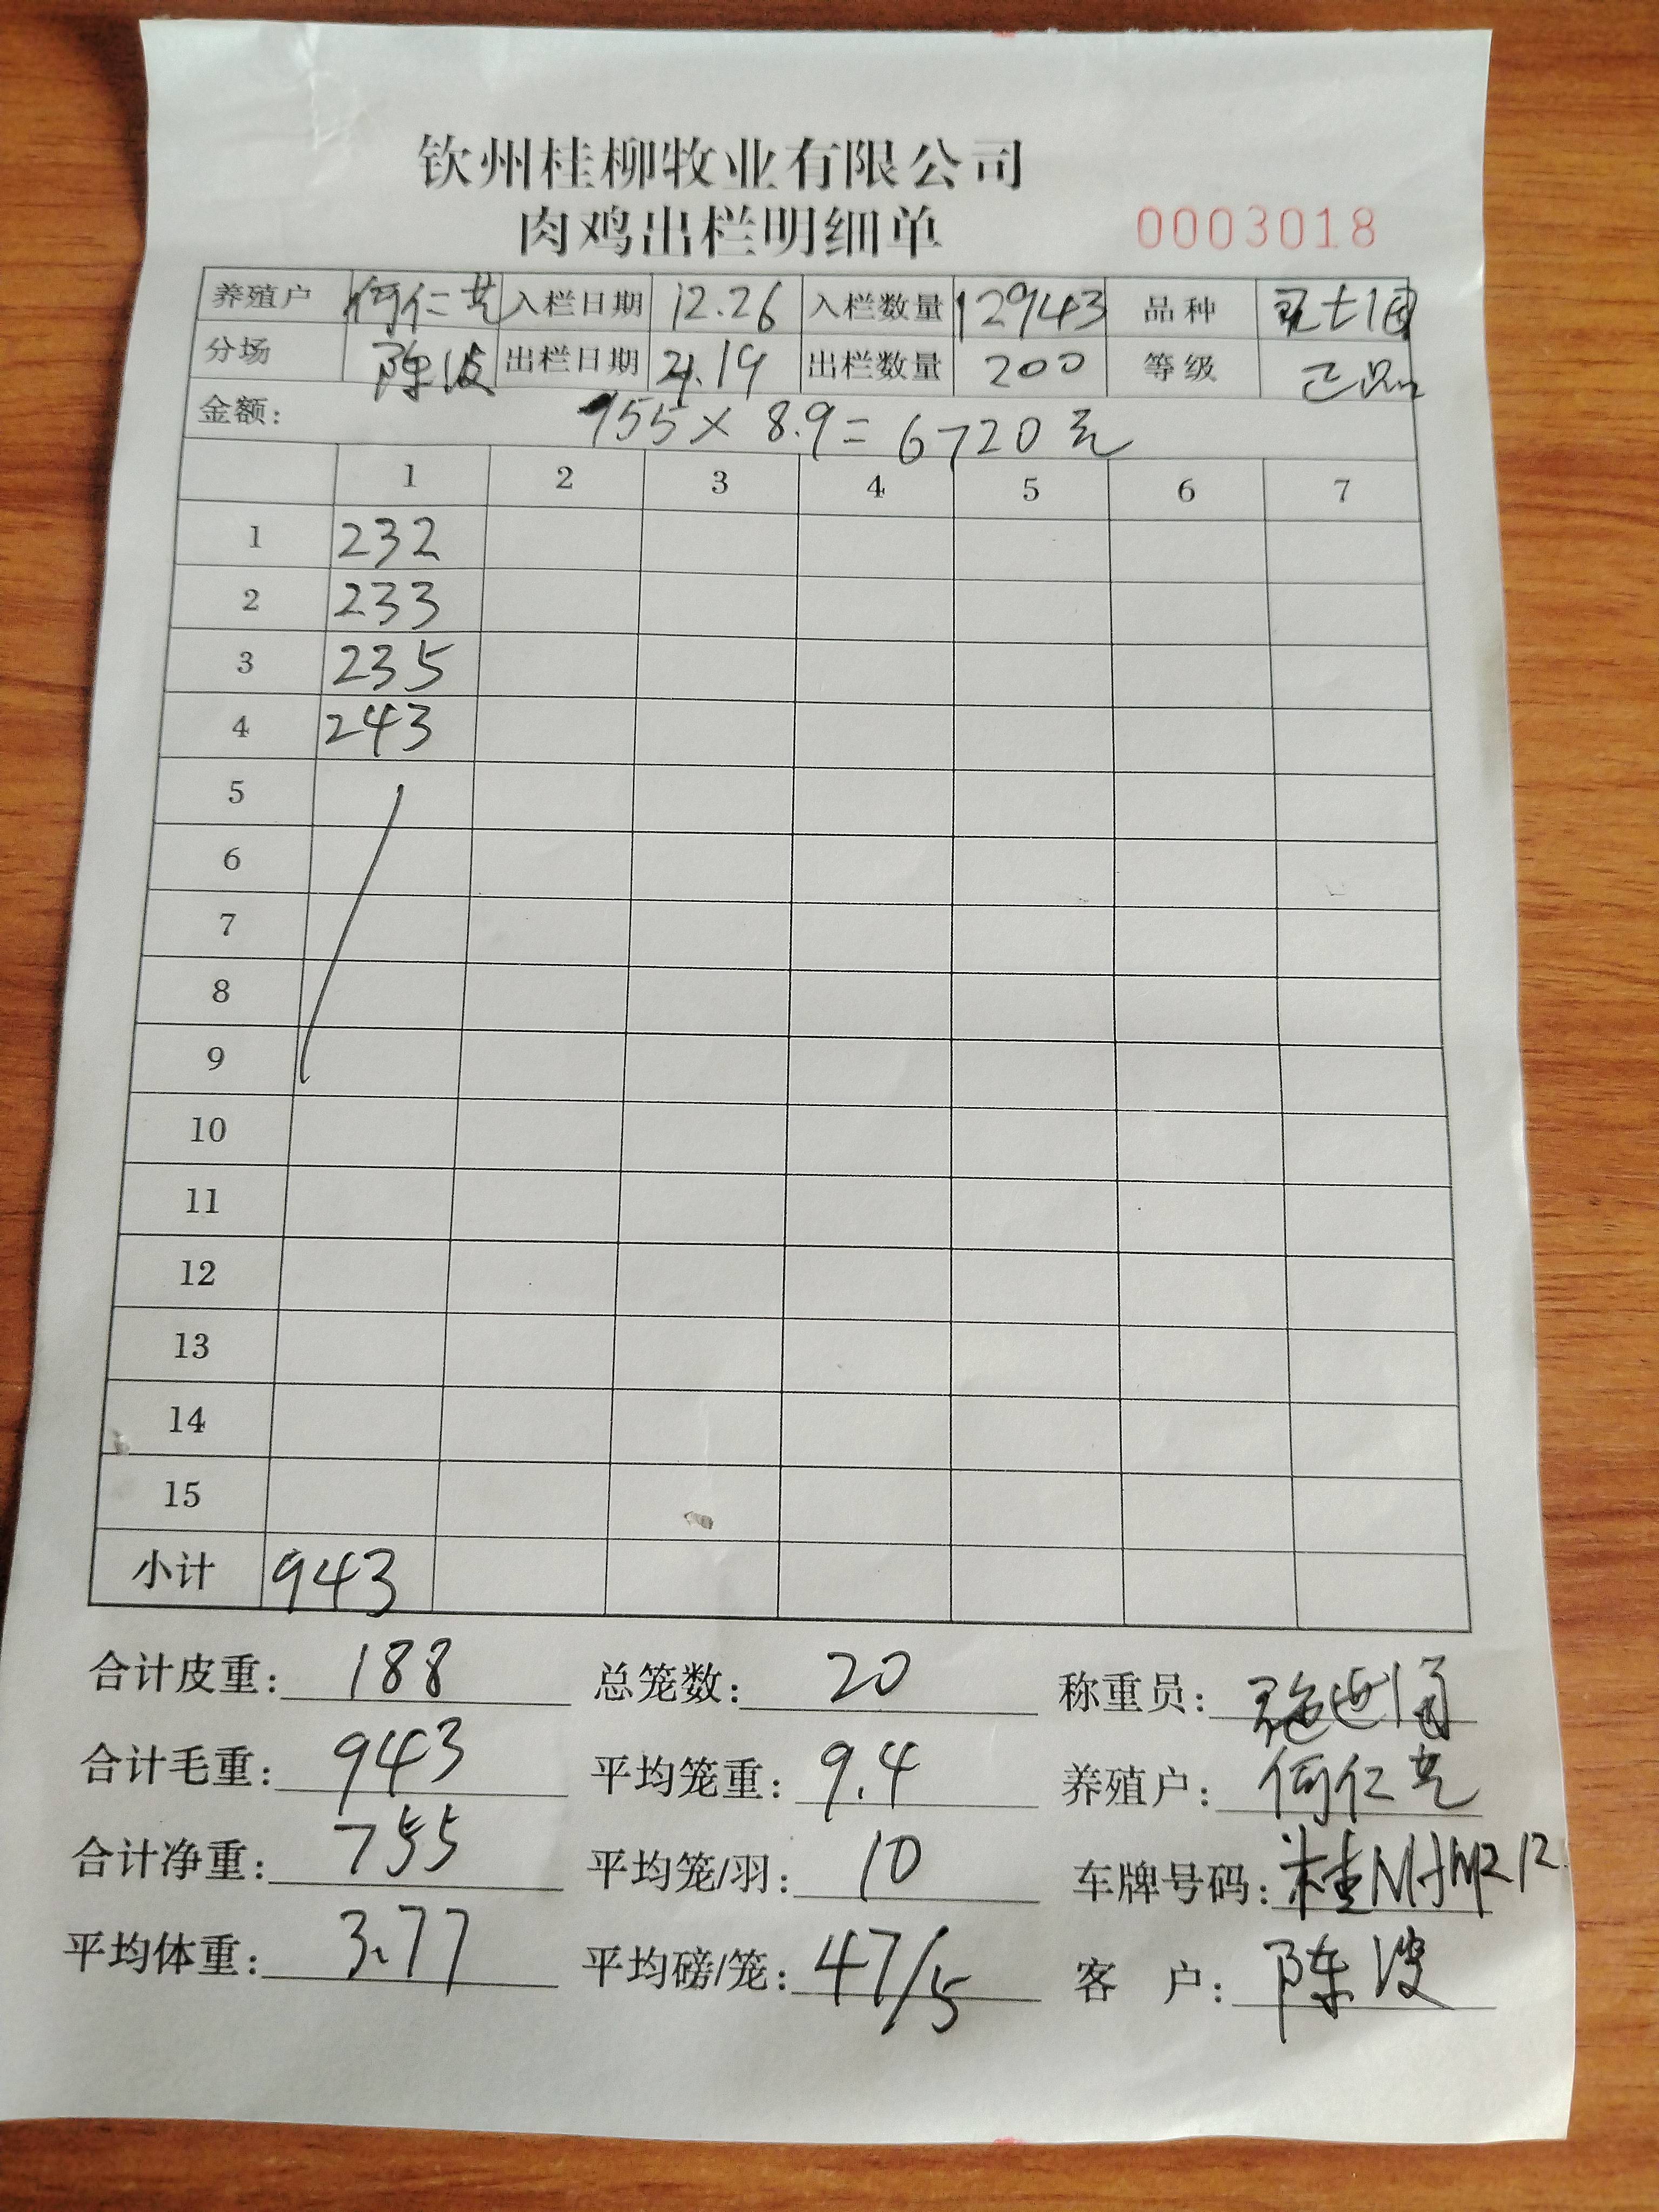 钦州桂柳牧业有限公司
肉鸡出栏明细单 0003018
养殖户 何仁芝 入栏日期 12.26 入栏数量 12943 品种
分场 陈波 出栏日期 4.19 出栏数量 200 等级 正品
金额: 755×8.9=6720元
1 2 3 4 5 6 7
1 232
2 233
3 235
4 243
5
6
7
8
9
10
11
12
13
14
15
小计 943
合计皮重: 188 总笼数: 20 称重员:
合计毛重: 943 平均笼重: 9.4 养殖户: 何仁芝
合计净重: 755 平均笼/羽: 10 车牌号码: 桂
平均体重: 3.77 平均磅/笼: 47/5 客户: 陈波